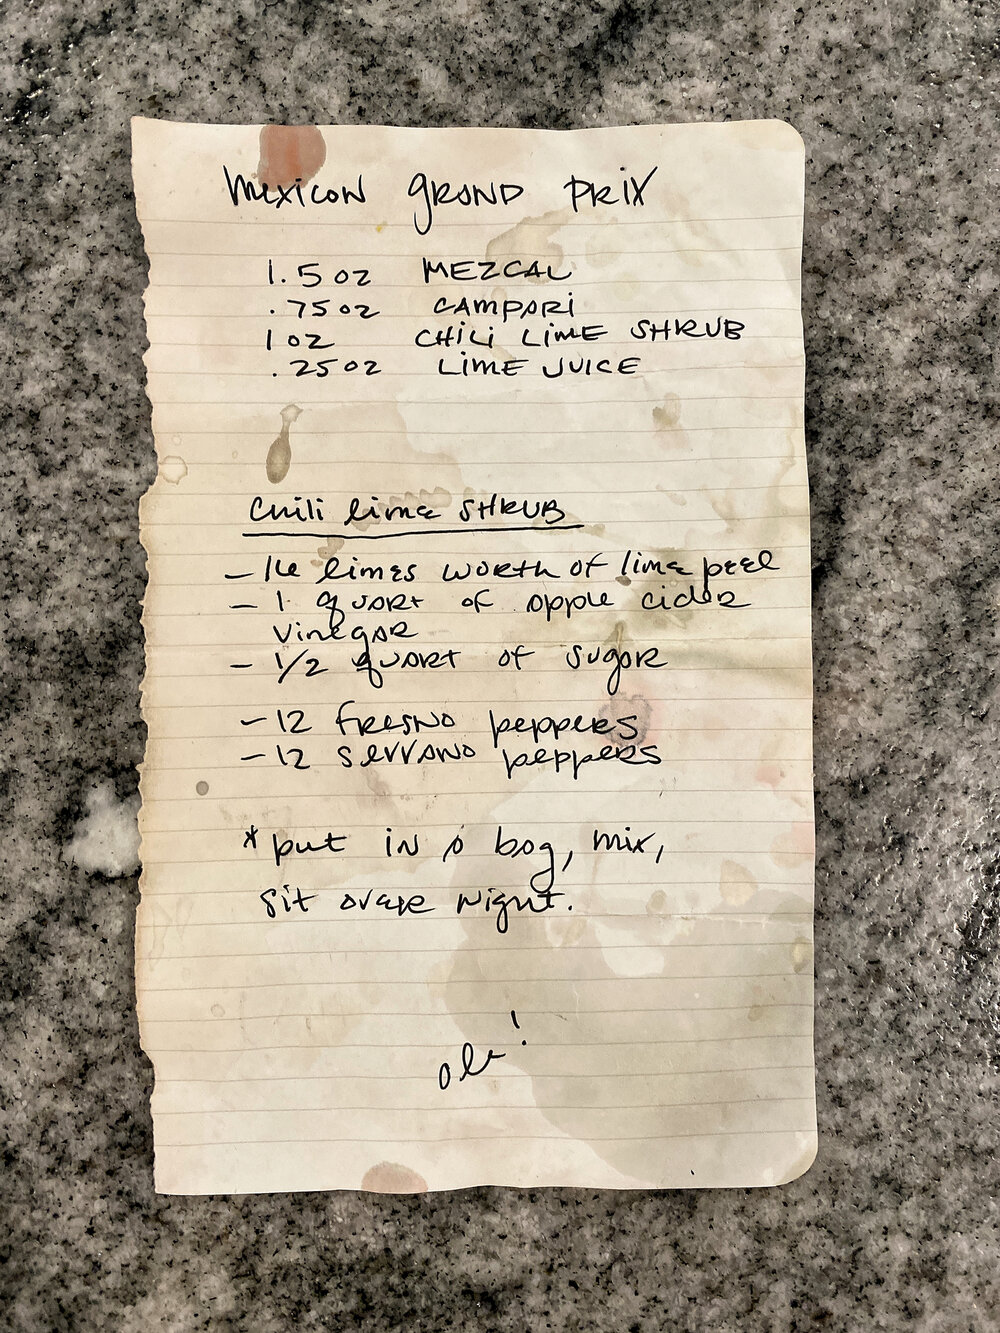 Mexican grand prix
1.5 oz MEZCAL
.75 oz CAMPARI
1 oz CHILI LIME SHRUB
.25 oz LIME JUICE
Chili lime SHRUB
- limes worth of lime peel
- 1 quart of apple cider
vinegar
- 1/2 quart of sugar
- 12 fresno peppers
- 12 serrano peppers
* put in a bag, mix,
sit over night.
ole!